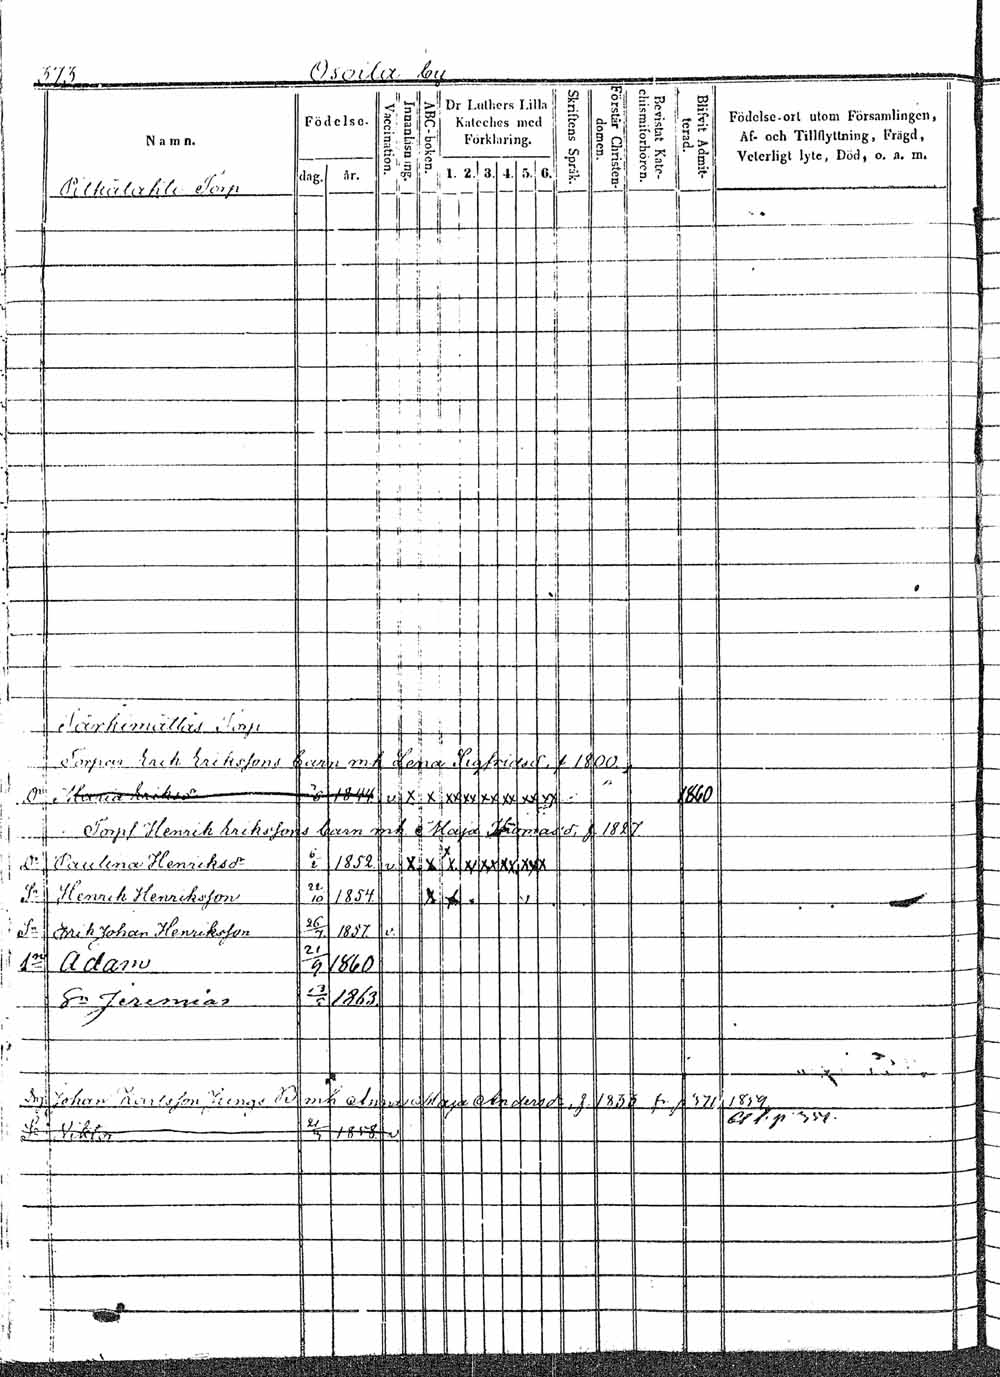 373 Osoila by
Namn.
Födelse.
dag. år.
Vaccination.
Innanläsning.
ABC-boken.
Dr Luthers Lilla Kateches med Förklaring.
1. 2. 3. 4. 5. 6.
Skriftens Språk.
Förstår Christendomen.
Bevistat Katechismiförhören.
Blifvit Admitterad.
Födelse-ort utom Församlingen,
Af- och Tillflyttning, Frägd,
Veterligt lyte, Död, o. a. m.
Torp
Torp
Torpar Erik Erikssons barn mk Lena Sigfridsd. f 1800
Dr Maria Eriksd 1844 v x x xx xx xx xx xx xx 1860
Torpf Henrik Erikssons barn mk Maja Thomasd. f. 1827
Dr Paulina Henriksd 1852 v x x x xx xx xx xx x
Sn Henrik Henriksson 22/10 1854 x x
Sn Erik Johan Henriksson 26/7 1857. v
Sn Adam 21/9 1860
Sn Jeremias 1863
Johan Karlsson Jungs mk Anna Maja Andersd, f. 1833 fr. p 371 1859
Sn Viktor 1858 v